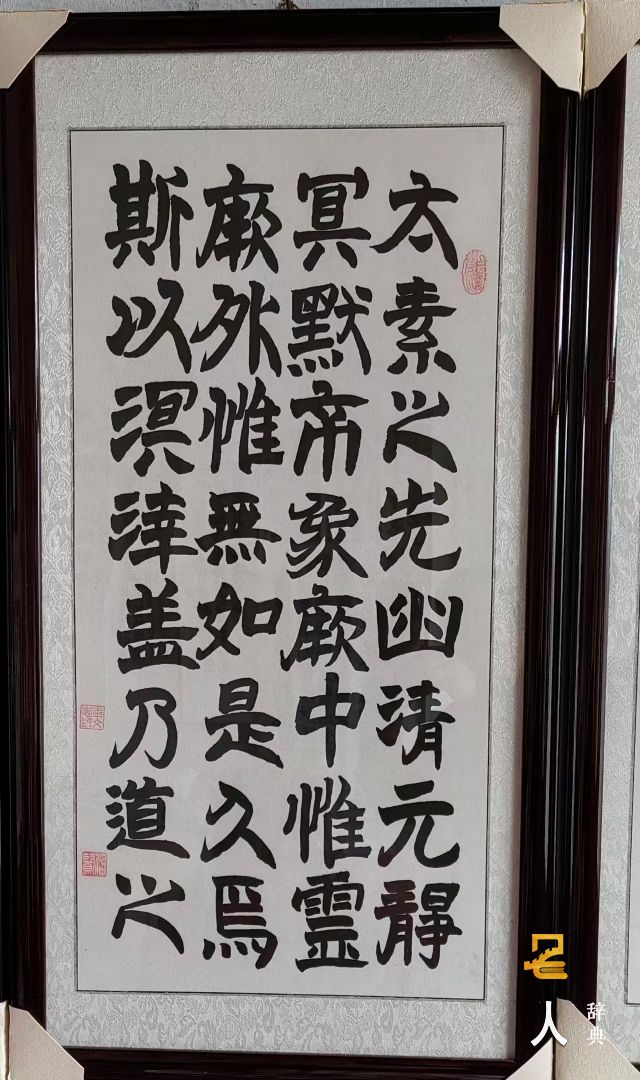 太素之先幽清元靜
冥默象厥中惟霊
厥外惟無如是久焉
斯以溟涬盖乃道之
人
辞典